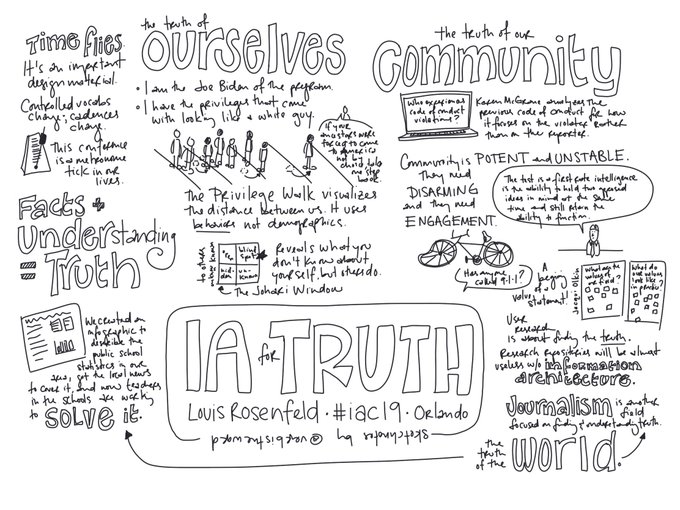 Time flies.
It's an important
design material.
Controlled vocabs
change; cadences
change.
This conference
is a metronome
tick in our
lives.
Facts +
Understanding
= Truth
We created an
infographic to
describe the
public school
statistics in our
area, got the local news
to cover it, and now teachers
in the schools are working
to solve it.
the truth of
ourselves
• I am the Joe Biden of the program.
• I have the privileges that come
with looking like a white guy.
If your
ancestors were
forced to come
to America
not by
choice take
one step
back.
The Privilege Walk visualizes
the distance between us. It uses
behaviors not demographics.
to others
unknown known
blind
spot
hid-
den
un-
known
Reveals what you
don't know about
yourself, but others do.
The Johari Window
IA for TRUTH
Louis Rosenfeld · #iac19 · Orlando
sketchnotes by @verbistheword
the truth of our
community
Who experiences
code of conduct
violations?
Karen McGrane analyzes the
previous code of conduct for how
it focuses on the violator rather
than on the reporter.
Community is POTENT and UNSTABLE.
They need
DISARMING
and they need
ENGAGEMENT.
The test of a first rate intelligence
is the ability to hold two opposed
ideas in mind at the same
time and still retain the
ability to function.
Has anyone
called 9-1-1?
A
beginning
of a
values
statement!
Jacqui Olkin
What are the
values of
our field?
What do
our values
look like
in practice?
User
Research
is about finding the truth.
Research repositories will be almost
useless w/o information
architecture.
Journalism is another
field
focused on finding & understanding truth.
the
truth
of the
world.